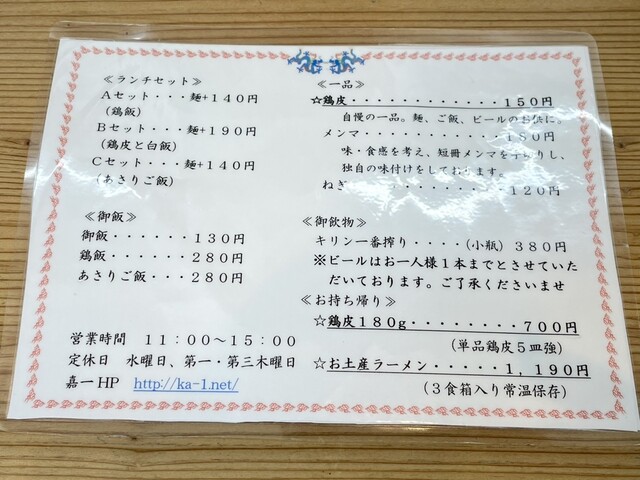 ≪ランチセット≫
Aセット・・・麺+140円
(鶏飯)
Bセット・・・麺+190円
(鶏皮と白飯)
Cセット・・・麺+140円
(あさりご飯)
≪御飯≫
御飯・・・・・・130円
鶏飯・・・・・・280円
あさりご飯・・・280円
営業時間 11:00～15:00
定休日 水曜日、第一・第三木曜日
嘉一HP http://ka-1.net/
≪一品≫
☆鶏皮・・・・・・・・・・・・・150円
自慢の一品。麺、ご飯、ビールのお供に。
メンマ・・・・・・・・・・・・180円
味・食感を考え、短冊メンマを手切りし、
独自の味付けをしております。
ねぎ・・・・・・・・・・120円
≪御飲物≫
キリン一番搾り・・・・(小瓶) 380円
※ビールはお一人様1本までとさせていた
だいております。ご了承くださいませ
≪お持ち帰り≫
☆鶏皮180g・・・・・・・・700円
(単品鶏皮5皿強)
☆お土産ラーメン・・・・・1,190円
(3食箱入り常温保存)